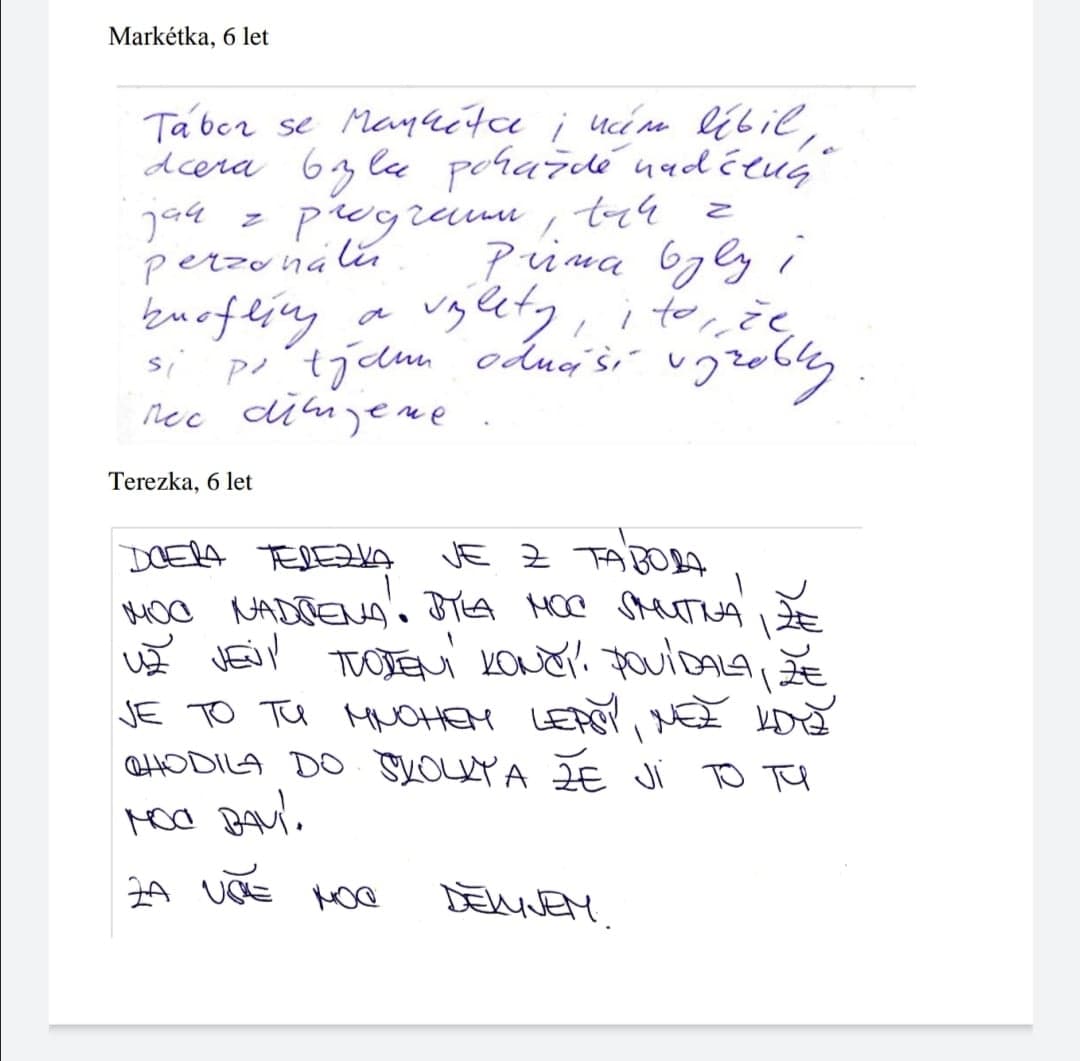 Markétka, 6 let
Tábor se Markétce i nám líbil,
dcera byla pokaždé nadčená
jak z programu, tak z
perzonálu. Prima byly i
knoflíky a výlety, i to, že
si po týdnu odnáší výrobky.
Moc děkujeme.
Terezka, 6 let
DCERA TEREZKA JE Z TÁBORA
MOC NADŠENÁ. BYLA MOC SMUTNÁ, ŽE
UŽ JEJÍ TVOŘENÍ KONČÍ. POVÍDALA, ŽE
JE TO TU MNOHEM LEPŠÍ, NEŽ KDYŽ
CHODILA DO ŠKOLKY A ŽE JI TO TU
MOC BAVÍ.
ZA VŠE MOC DĚKUJEM.